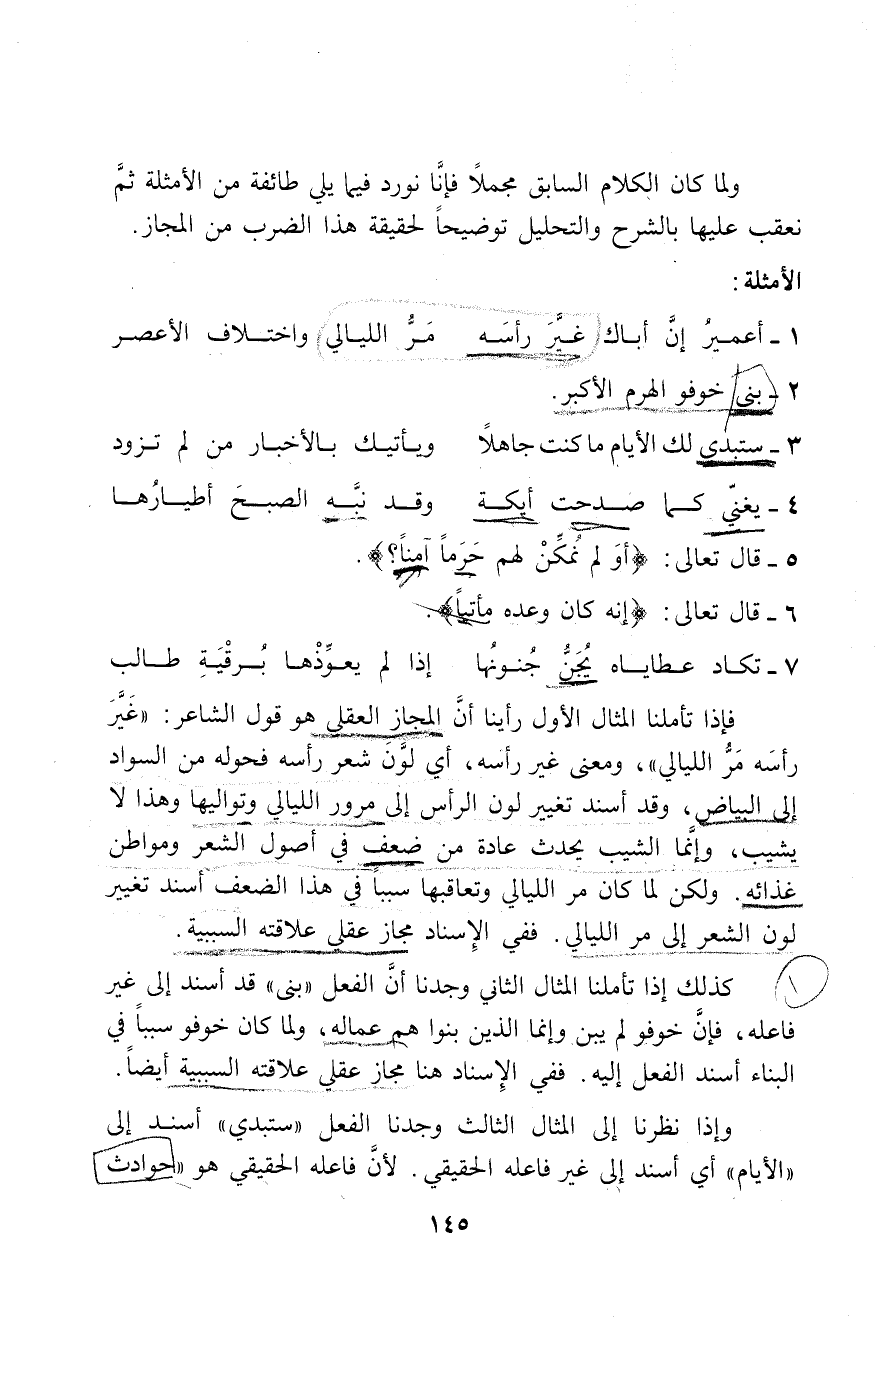 ولما كان الكلام السابق مجملاً فإنَّا نورد فيما يلي طائفة من الأمثلة ثمَّ
نعقب عليها بالشرح والتحليل توضيحاً لحقيقة هذا الضرب من المجاز.
الأمثلة:
١ - أعميرُ إنَّ أباك غيَّرَ رأسَه مَرُّ الليالي واختلاف الأعصر
٢ - بنى خوفو الهرم الأكبر.
٣ - ستبدي لك الأيام ما كنت جاهلاً ويأتيك بالأخبار من لم تزود
٤ - يغنّي كما صدحت أيكة وقد نبَّه الصبحَ أطيارُها
٥ - قال تعالى: ﴿أوَ لم نُمكِّنْ لهم حَرَماً آمناً؟﴾.
٦ - قال تعالى: ﴿إنه كان وعده مأتياً﴾.
٧ - تكاد عطاياه يُجَنُّ جُنونُها إذا لم يعوِّذْها بُرقْيَةِ طالب
فإذا تأملنا المثال الأول رأينا أنَّ المجاز العقلي هو قول الشاعر: «غَيَّرَ
رأسَه مَرُّ الليالي»، ومعنى غير رأسه، أي لوَّنَ شعر رأسه فحوله من السواد
إلى البياض، وقد أسند تغيير لون الرأس إلى مرور الليالي وتواليها وهذا لا
يشيب، وإنَّما الشيب يحدث عادة من ضعف في أصول الشعر ومواطن
غذائه. ولكن لما كان مر الليالي وتعاقبها سبباً في هذا الضعف أسند تغيير
لون الشعر إلى مر الليالي. ففي الإسناد مجاز عقلي علاقته السببية.
كذلك إذا تأملنا المثال الثاني وجدنا أنَّ الفعل «بنى» قد أسند إلى غير
فاعله، فإنَّ خوفو لم يبن وإنما الذين بنوا هم عماله، ولما كان خوفو سبباً في
البناء أسند الفعل إليه. ففي الإسناد هنا مجاز عقلي علاقته السببية أيضاً.
وإذا نظرنا إلى المثال الثالث وجدنا الفعل «ستبدي» أسند إلى
«الأيام» أي أسند إلى غير فاعله الحقيقي. لأنَّ فاعله الحقيقي هو «حوادث
١٤٥